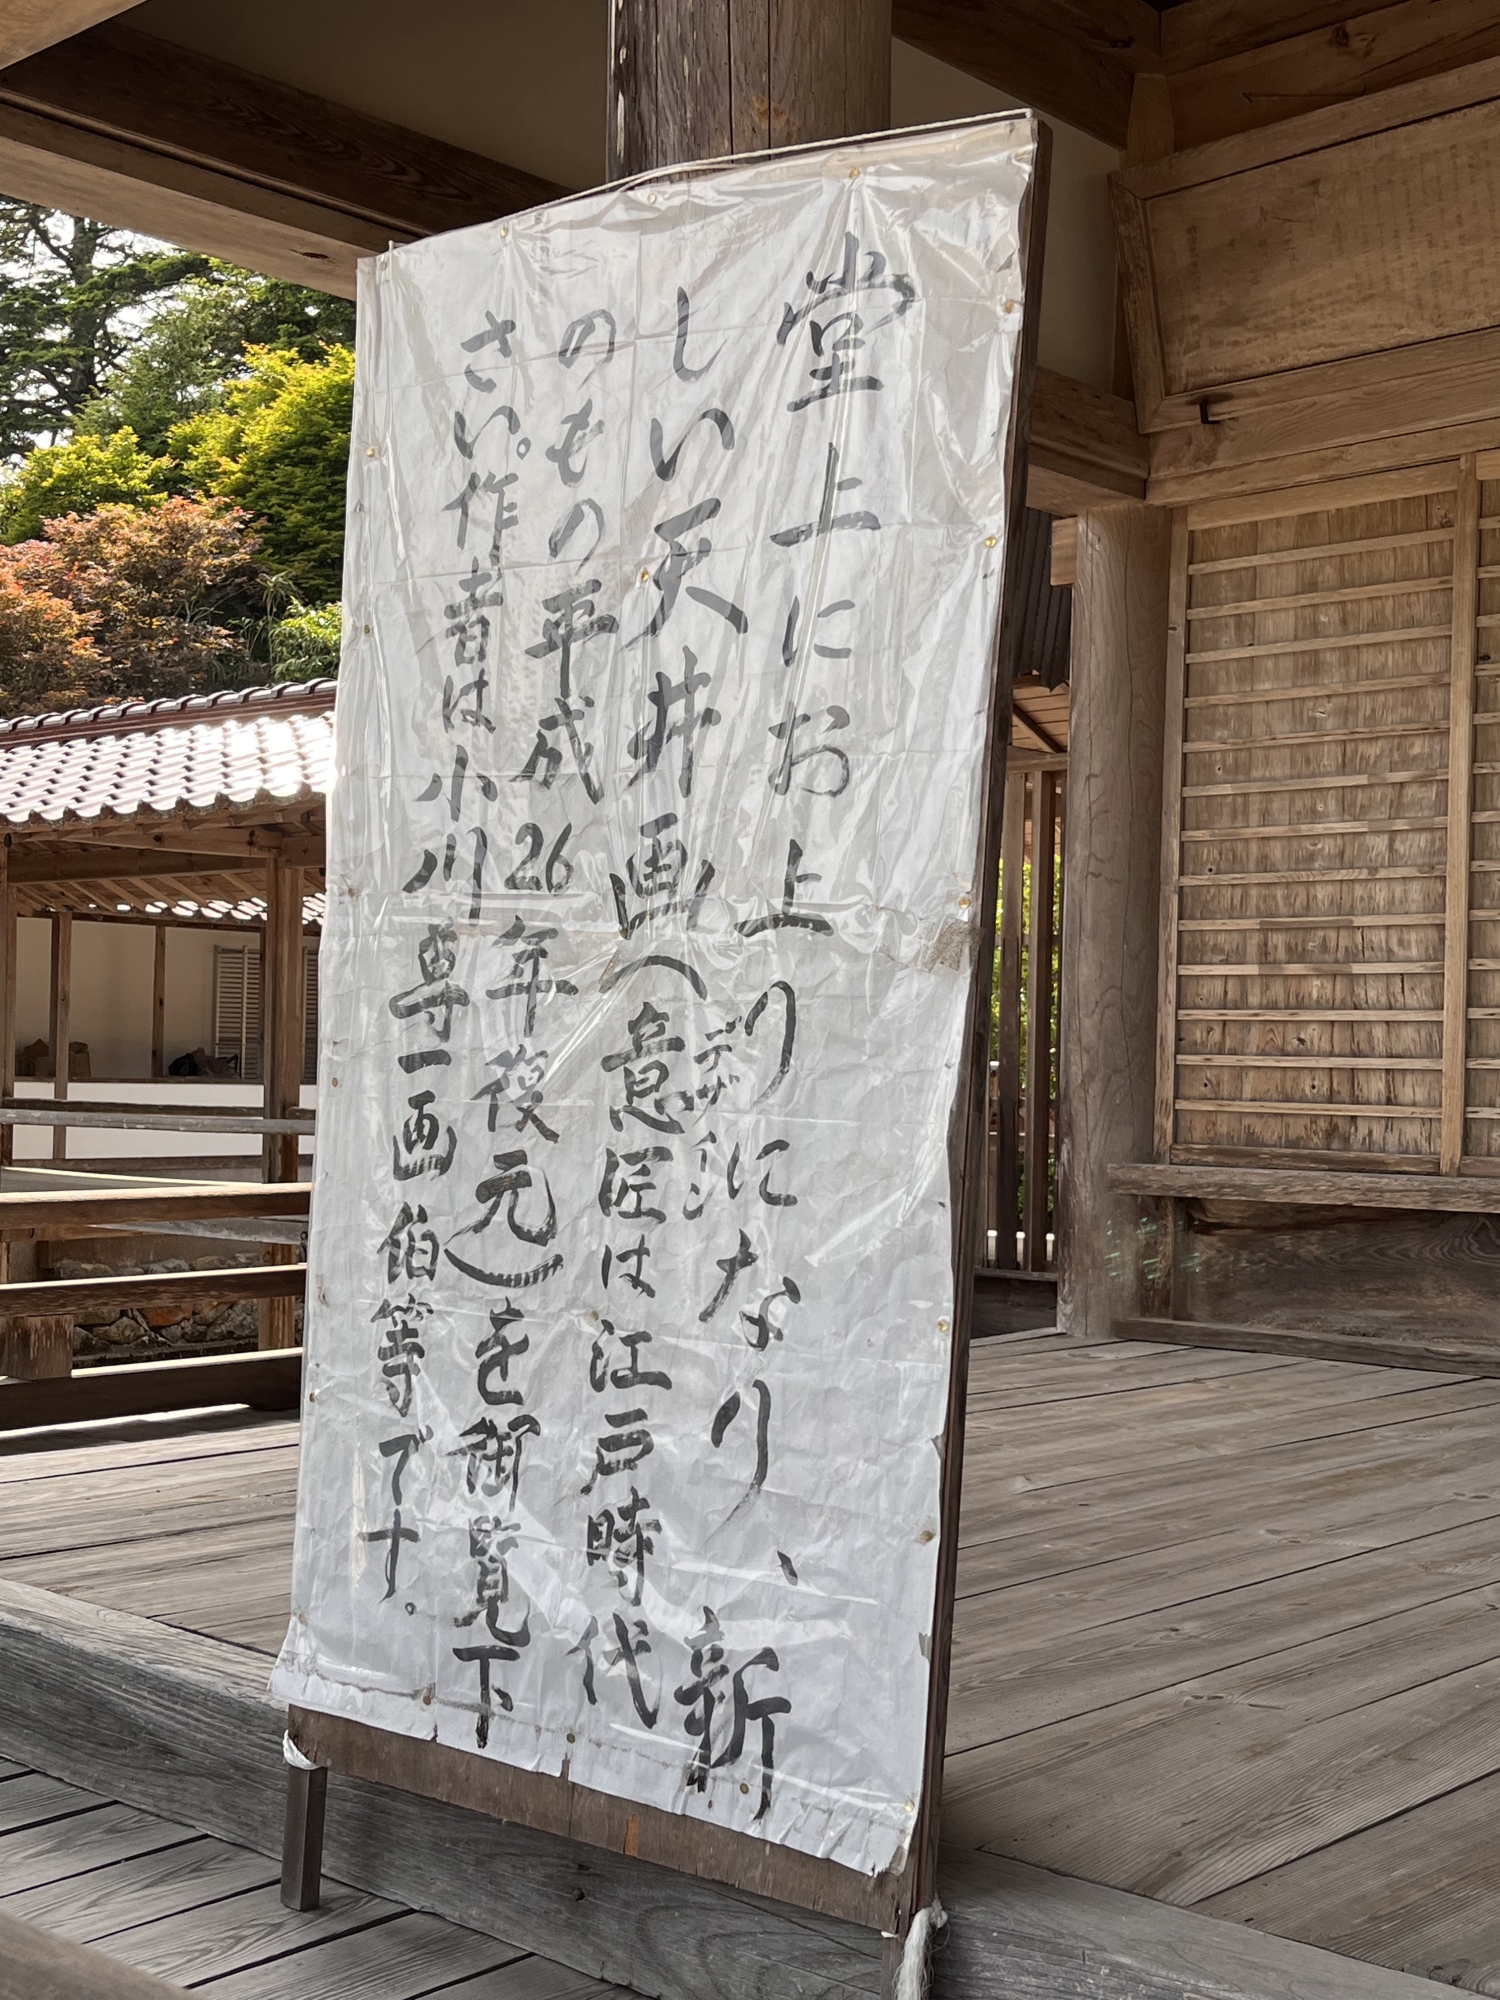 堂上にお上りになり、新
しい天井画(意匠は江戸時代
デザイン
のもの平成26年復元)を御覧下
さい。作者は小川尊一画伯等です。